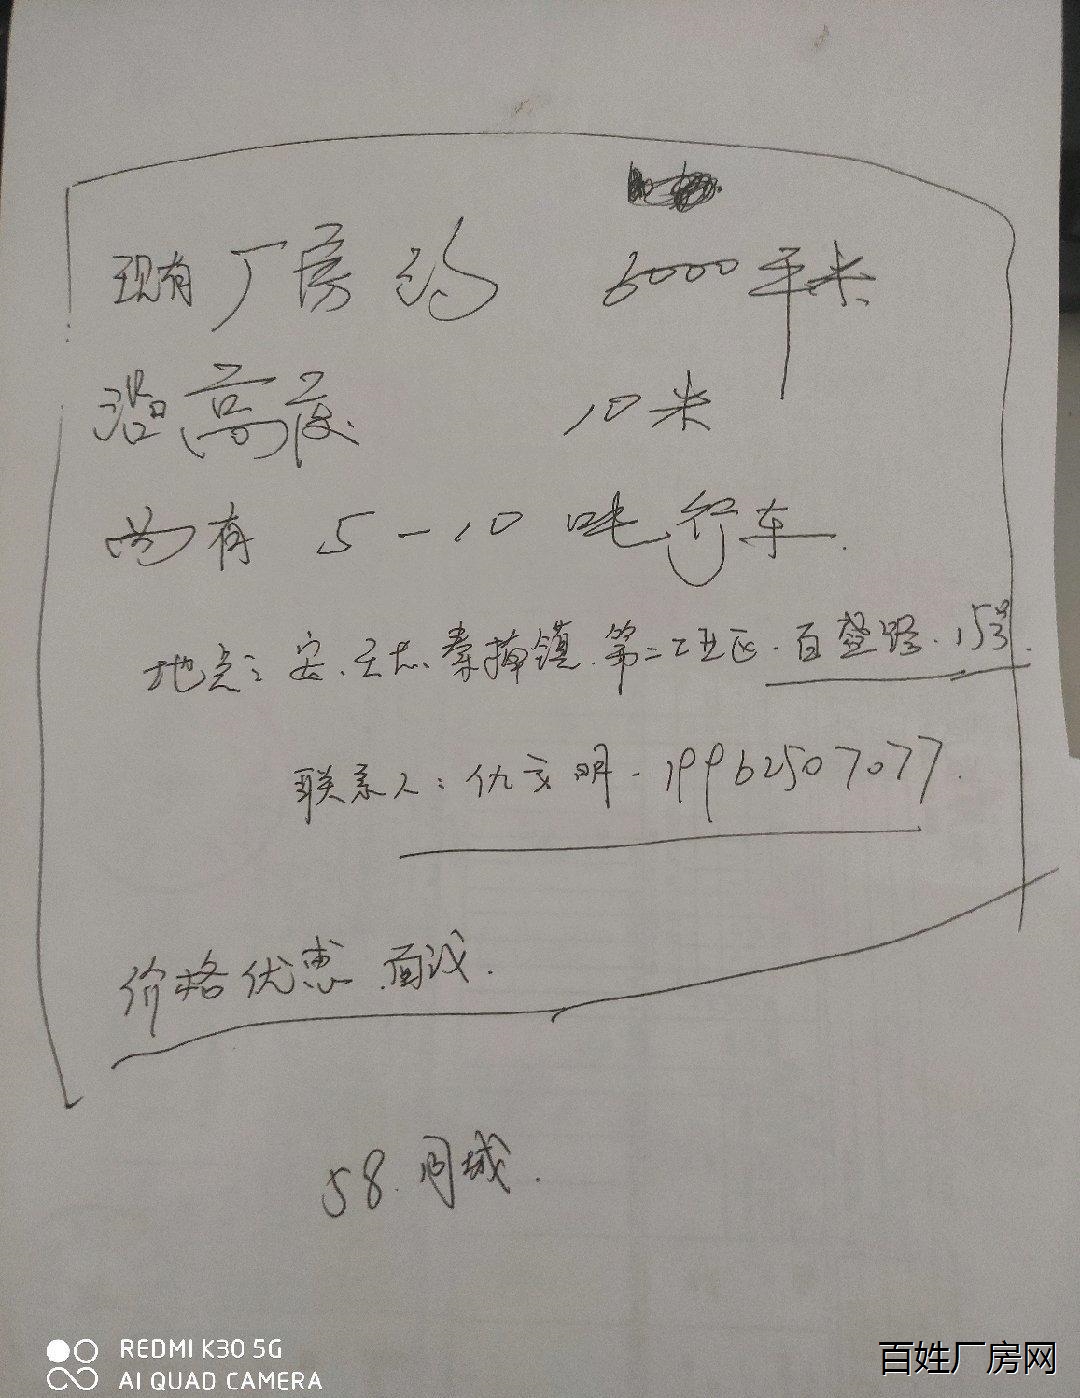 现有厂房约 6000平米
沿高度 10米
尚有 5-10 吨行车.
地点: 秦 镇.第二工业区.百盛路.15号.
联系人:仇文明.19962507077.
价格优惠.面议.
58.同城.
REDMI K30 5G
AI QUAD CAMERA
百姓厂房网